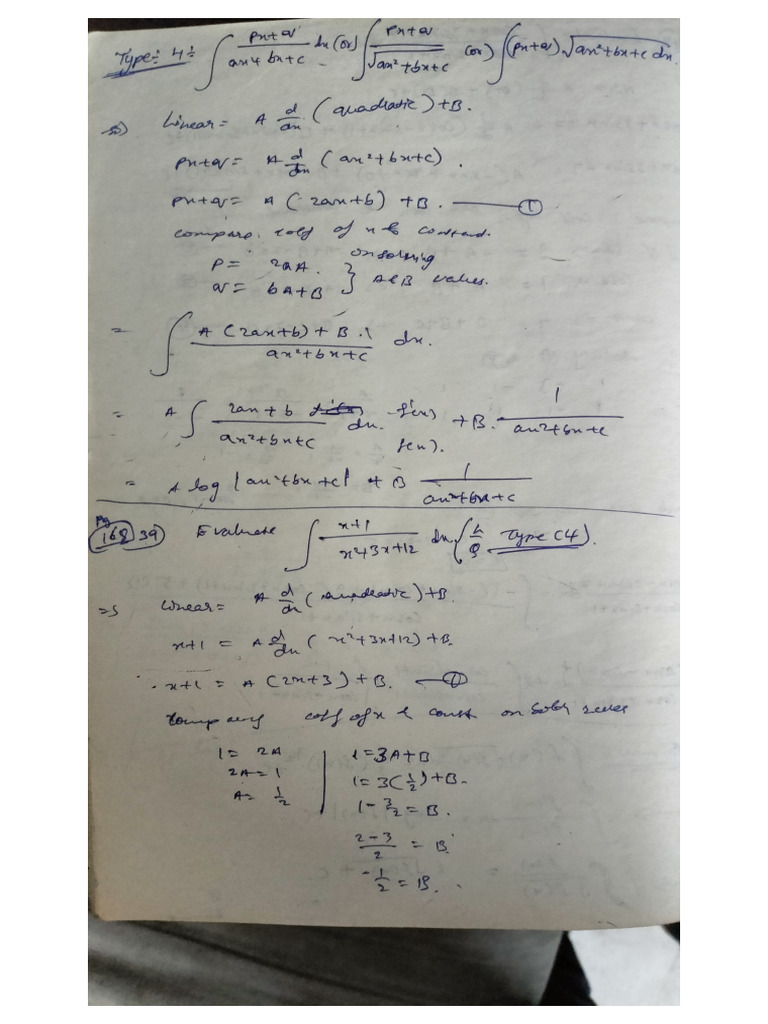 Type:- 4 ÷ ∫ px+q / ax²+bx+c dx (or) ∫ px+q / √ax²+bx+c (or) ∫ (px+q) √ax²+bx+c dx.
Linear = A d/dx (quadratic) + B.
px+q = A d/dx (ax²+bx+c).
px+q = A (2ax+b) + B. — ①
compare. coeff of x & constand.
p = 2aA. } on solving
q = bA+B } A&B values.
= ∫ A (2ax+b) + B.1 / ax²+bx+c dx.
= A ∫ 2ax+b / ax²+bx+c dx. f'(x) / f(x). + B. 1 / ax²+bx+c
= A log |ax²+bx+c| + B 1 / ax²+bx+c
Pg 168 39) Evaluate ∫ x+1 / x²+3x+12 dx (L/Q Type (4).
=> Linear = A d/dx (Quadratic) + B.
x+1 = A d/dx (x²+3x+12) + B.
x+1 = A (2x+3) + B. — ①
coff of x & const on
1 = 2A | 1 = 3A+B
2A = 1 | 1 = 3(1/2) + B.
A = 1/2 | 1 - 3/2 = B.
2-3 / 2 = B.
-1/2 = B.